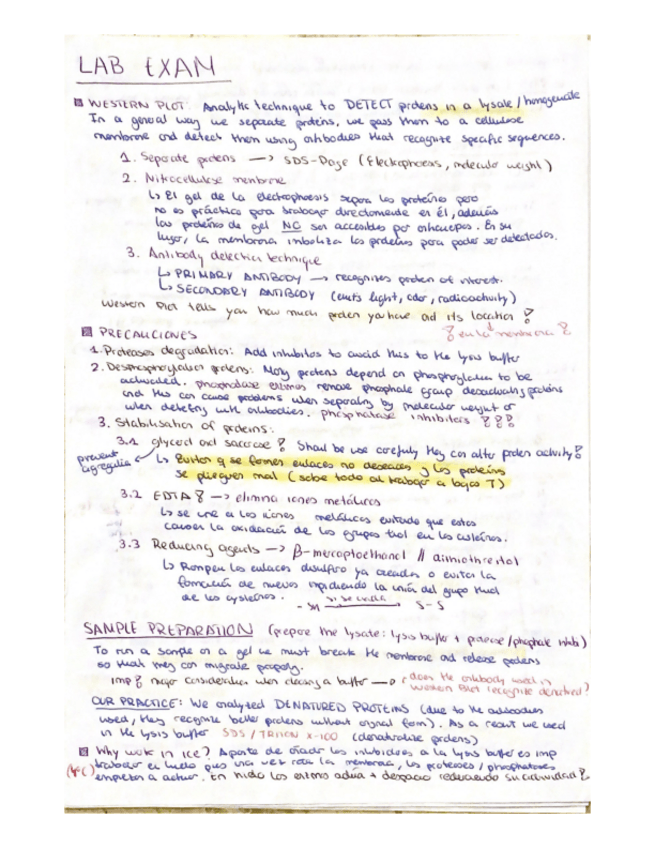 LAB EXAM
WESTERN PLOT: Analytic technique to DETECT proteins in a lysate / homogenate
In a general way we separate proteins, we pass them to a cellulose
membrane and detect them using antibodies that recognize specific sequences.
1. Separate proteins → SDS-Page (Electrophoresis, molecular weight)
2. Nitrocellulose membrane
↳ El gel de la electrophoesis separa las proteínas pero
no es práctico para trabajar directamente en él, además
las proteínas de gel NO son accesibles por anticuerpos. En su
lugar, la membrana inmoboliza las proteínas para poder ser detectadas.
3. Antibody detection technique
↳ PRIMARY ANTIBODY → recognizes protein of interest.
↳ SECONDARY ANTIBODY (emits light, color, radioactivity)
Western Plot tells you how much protein you have and its location !
en la membrana
PRECAUCIONES
1. Proteases degradation: Add inhibitors to avoid this to the lysis buffer
2. Desphosphorylation proteins: Many proteins depend on phosphorylation to be
activated. phosphatase enzimes remove phosphate group desactivating proteins
and this can cause problems when separating by molecular weight or
when detecting with antibodies. phosphatase inhibitors
3. Stabilisation of proteins:
3.1 glycerol and sacarose Should be use carefuly they can alter protein activity
prevent agregation
↳ Evitan q se formen enlaces no deseados y las proteínas
se plieguen mal (sobre todo al trabajar a bajas T)
3.2 EDTA → elimina iones metálicos
↳ se une a los iones metálicos evitando que estos
causen la oxidación de los grupos tiol en las cisteínas.
3.3 Reducing agents → β-mercaptoethanol //
↳ Rompen los enlaces disulfuro ya creados o evitan la
formación de nuevos impidiendo la unión del grupo thiol
de las cysteínas.
- SH → S-S
SAMPLE PREPARATION (prepare the lysate: lysis buffer + protease / phosphate inhib)
To run a sample on a gel we must break the membrane and release proteins
so that they can migrate properly.
Imp major consideration when choosing a buffer → ¿does the antibody used in
western Plot recognize denatured?
OUR PRACTICE: We analyzed DENATURED PROTEINS (due to the antibodies
used, they recognize better proteins without original form). As a result we used
in the lysis buffer SDS / TRITON X-100 (denaturalize proteins)
Why work in ice? Aparte de añadir los inhibidores a la lysis buffer es imp
(4ºC) trabajar en hielo pues una vez rota la membrana, las proteases / phosphatases
empiezan a actuar. En hielo las enzimas actúa + despacio reduciendo su actividad